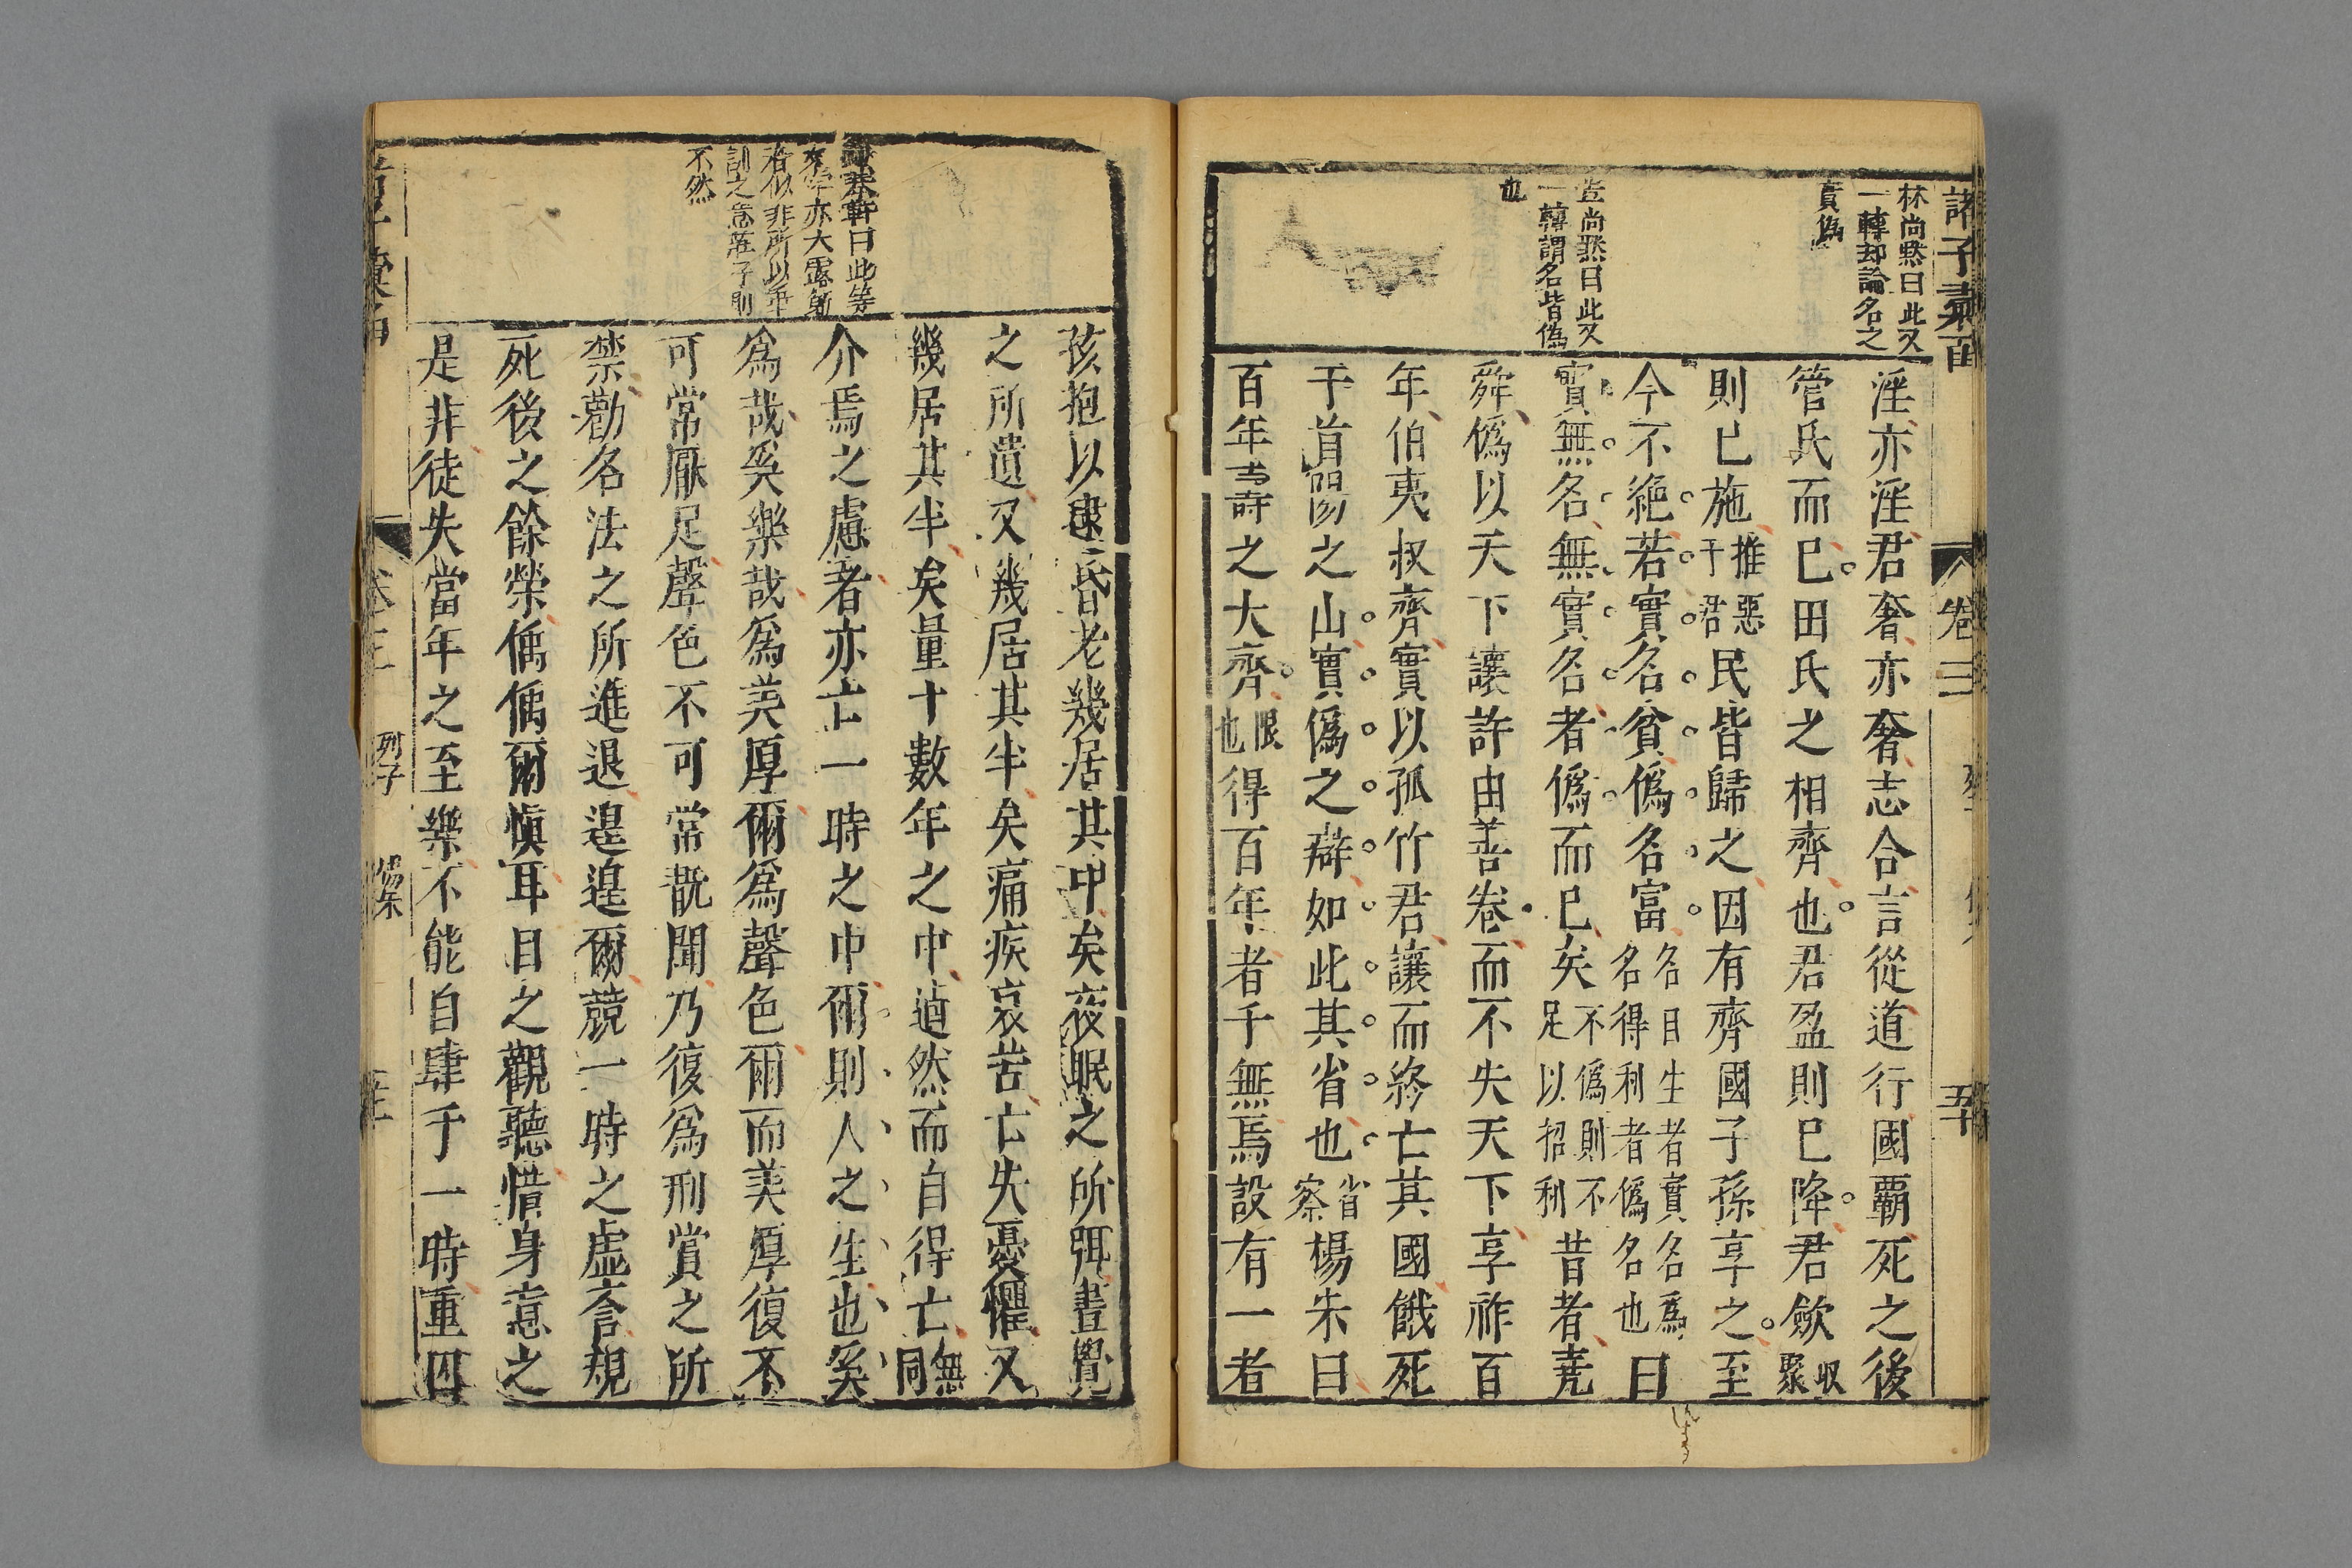 林尚黙曰此又
一轉却論名之
實偽
豈尚黙曰此又
一轉謂名皆偽
也
淫亦淫君奢亦奢志合言從道行國霸死之後
管氏而已田氏之相齊也君盈則已降君歛収聚
則已施推惡于君民皆歸之因有齊國子孫享之至
今不絶若實名貧偽名富名自生者實名爲名得利者偽名也曰
實無名無實名者偽而已矣不偽則不足以招利昔者尭
舜偽以天下讓許由善卷而不失天下享祚百
年伯夷叔齊實以孤竹君讓而終亡其國餓死
于首陽之山實偽之辯如此其省也省察楊朱曰
百年壽之大齊限也得百年者千無焉設有一者
諸子彚函
卷三
五十
曰此等
亦大露
者似非所以平
訓之意莊子則
不然
孩抱以逮昏老幾居其中矣夜眠之所弭晝覺
之所遺又幾居其半矣痛疾哀苦亡失憂懼又
幾居其半矣量十數年之中逌然而自得亡無同
介焉之慮者亦亡一時之中爾則人之生也奚
爲哉奚樂哉爲美厚爾爲聲色爾而美厚復不
可常厭足聲色不可常翫聞乃復爲刑賞之所
禁勸名法之所進退遑遑爾競一時之虛譽規
死後之餘榮偊偊爾慎耳目之觀聽惜身意之
是非徒失當年之至樂不能自肆于一時重囚
卷三
列子
楊朱